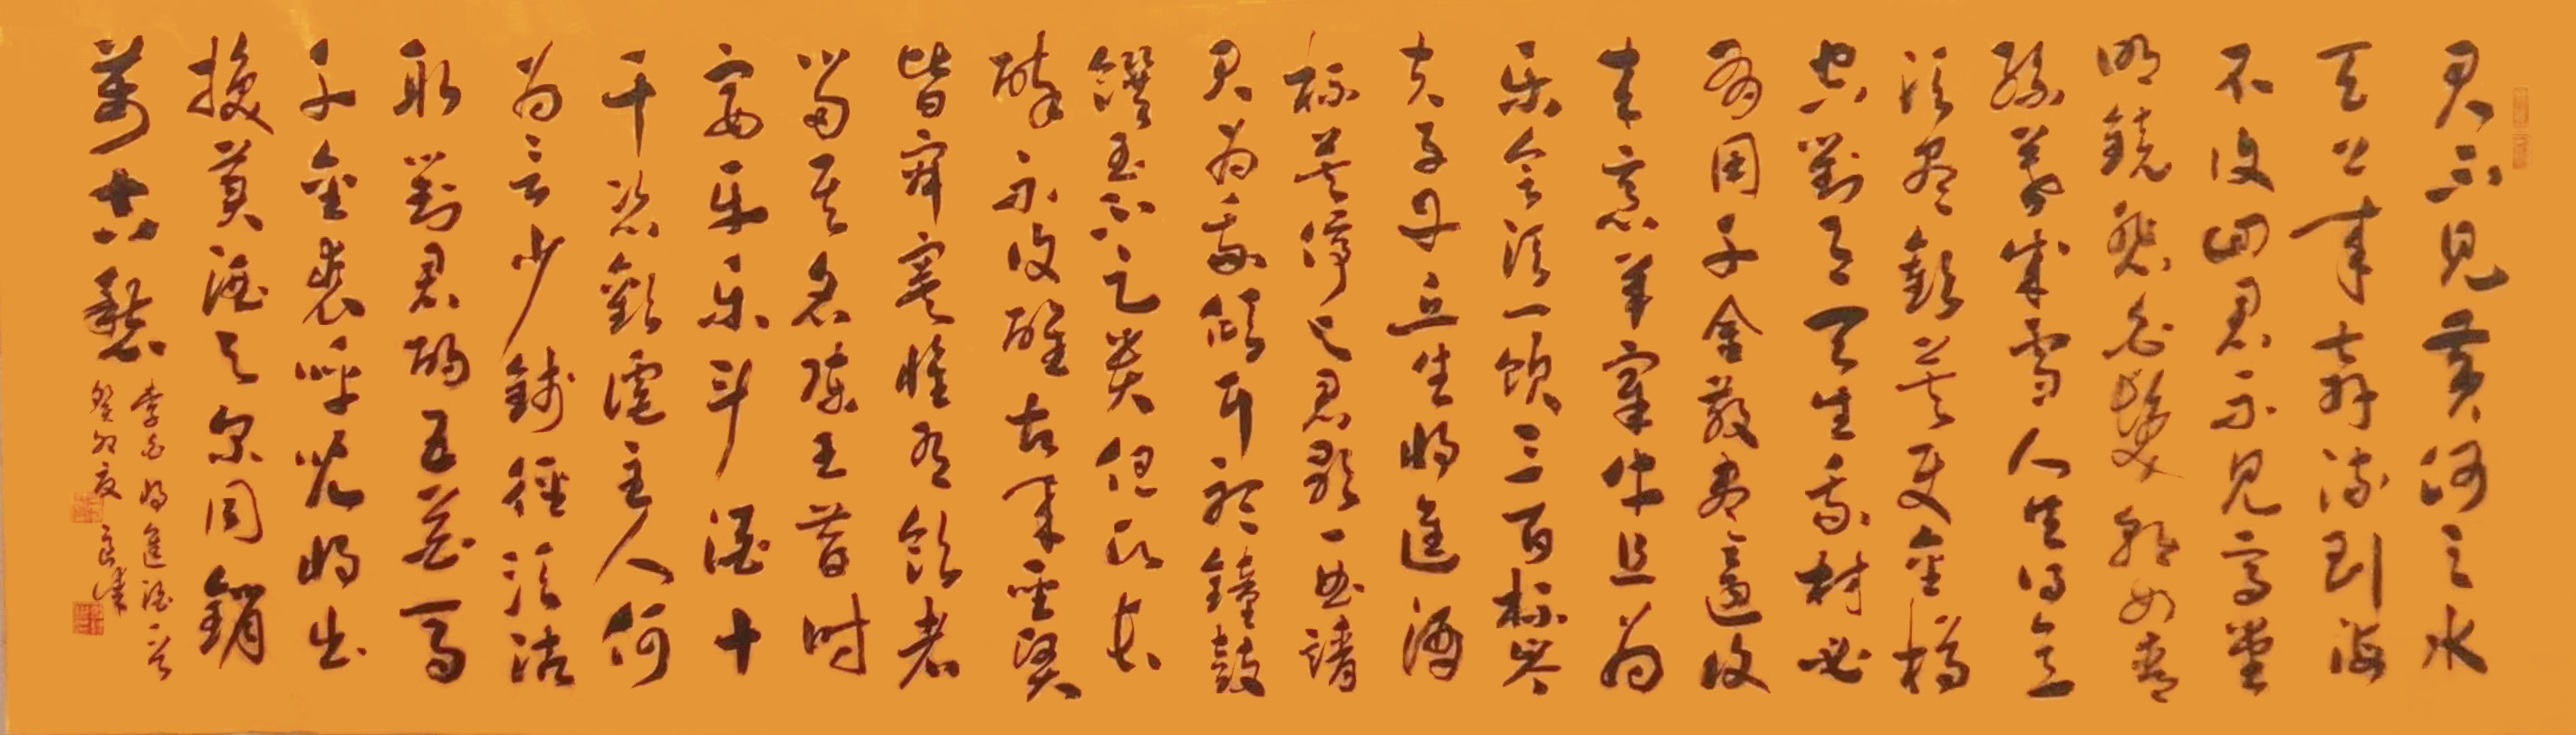 君不見黃河之水
天上来奔流到海
不復回君不見高堂
明鏡悲白髮朝如青
絲暮成雪人生得意
須盡歡莫使金樽
空對月天生我材必
有用千金散盡還復
来烹羊宰牛且為
樂會須一飲三百杯岑
夫子丹丘生将進酒
杯莫停与君歌一曲請
君為我傾耳聽鐘鼓
饌玉不足貴但願長
醉不復醒古来聖賢
皆寂寞惟有飲者
留其名陳王昔時
宴平樂斗酒十
千恣歡謔主人何
為言少錢徑須沽
取對君酌五花馬
千金裘呼兒将出
換美酒与尔同銷
萬古愁
李白将進酒一首
癸卯夏 良